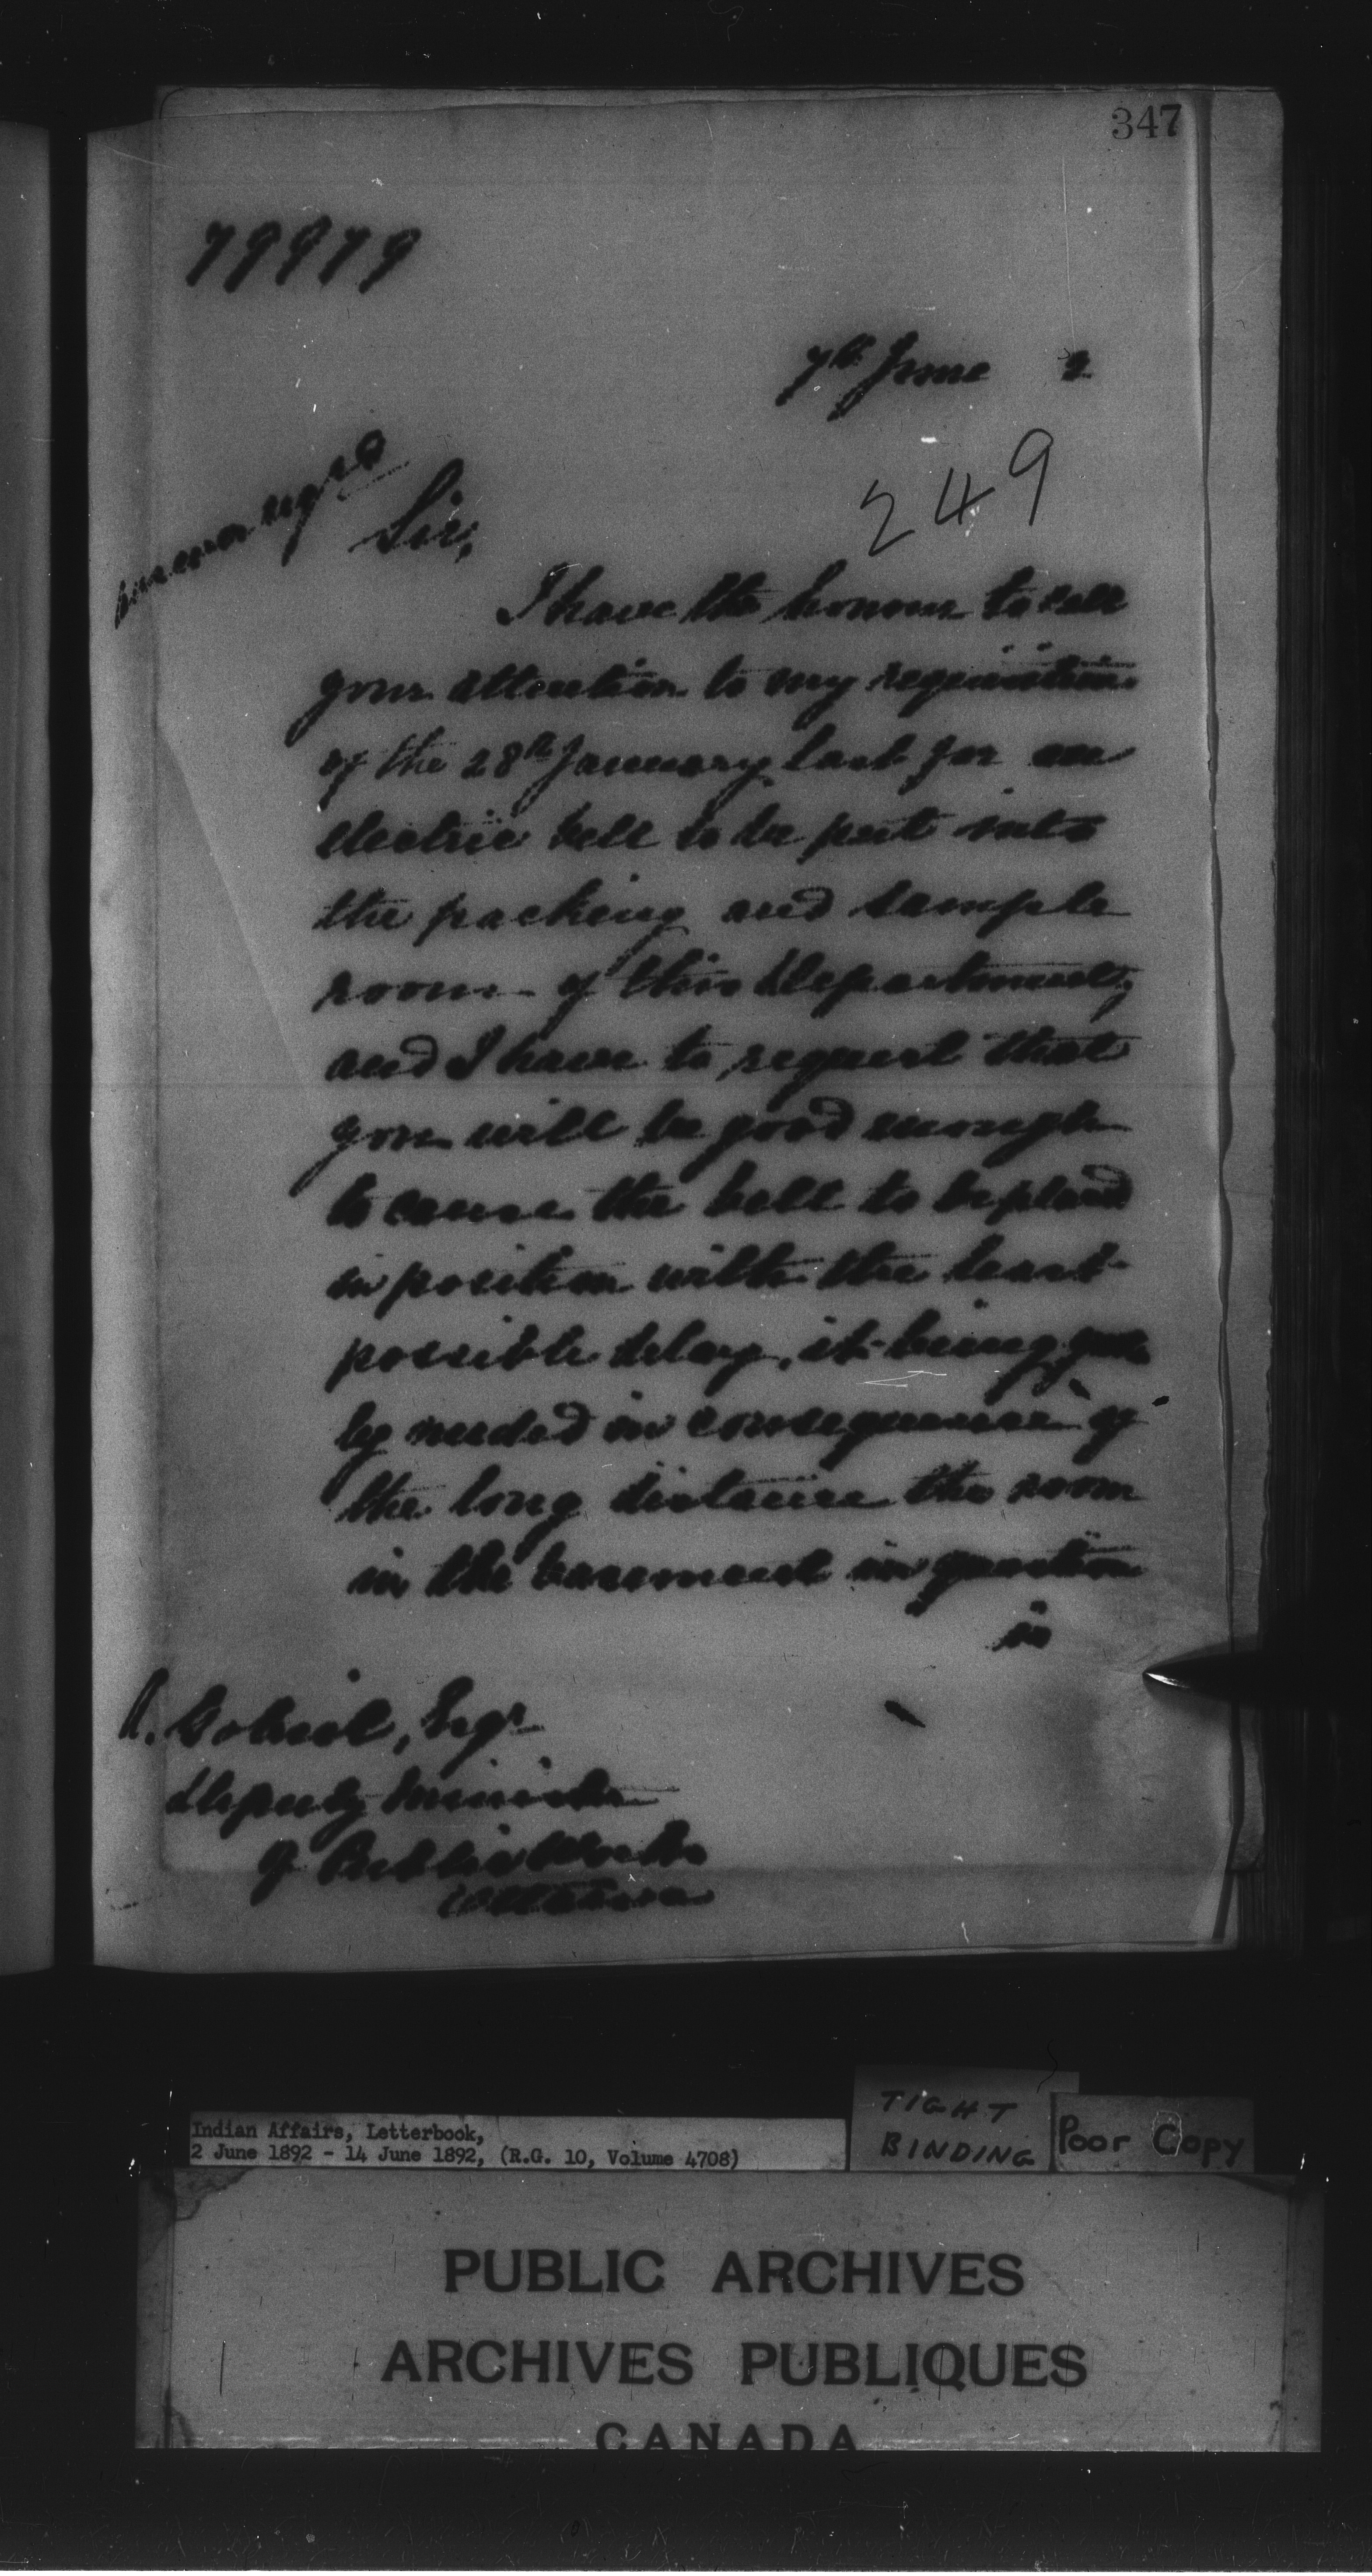 347
79979
7th June 2
249
Sir,
I have the honour to call
your attention to my requisition
of the 28th January last for an
electric bell to be put into
the packing and sample
room of this Department,
and I have to request that
you will be good enough
to cause the bell to be placed
in position with the least
possible delay, it being
needed in consequence of
the long distance the room
in the basement in question
is
A. Gobeil, Esqr
Deputy Minister
of Public Works
Ottawa
TIGHT
BINDING
Poor Copy
Indian Affairs, Letterbook,
2 June 1892 - 14 June 1892, (R.G. 10, Volume 4708)
PUBLIC ARCHIVES
ARCHIVES PUBLIQUES
CANADA